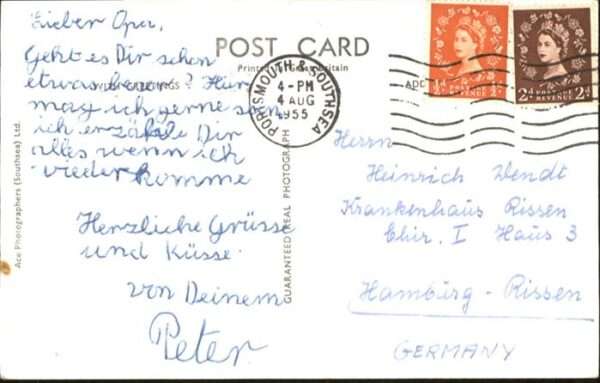 Lieber Opa,
Geht es Dir schon
etwas besser? Hier
mag ich gerne sein
ich erzähle Dir
alles wenn ich
wieder komme
Herzliche Grüsse
und Küsse
von Deinem
Peter
POST CARD
Printed in Great Britain
WITH GREETINGS
ADD
Ace Photographers (Southsea) Ltd.
GUARANTEED REAL PHOTOGRAPH
PORTSMOUTH & SOUTHSEA
4-PM
4 AUG
1955
POSTAGE
REVENUE
2d 2d
Herrn
Heinrich Wendt
Krankenhaus Rissen
Chir. I Haus 3
Hamburg-Rissen
GERMANY